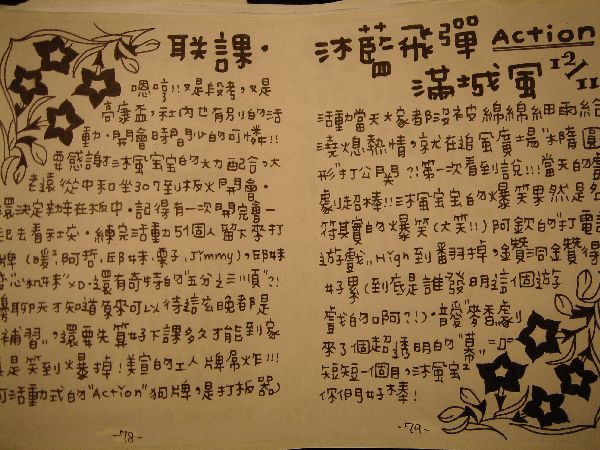 联課·
嗯哼!!又是段考,又是
高康盃,社內也有別的活
動,開會時間少的可憐!!
要感謝沐風宝宝的大力配合,大
老遠從中和坐307到板火開會。
還決定幸在板中。記得有一次開完會一
起去看社炎。練完活動51個人留下來打
牌(暖、阿哲、邱妹、栗子、Jimmy),邱妹
"心机妹"XD。還有奇特的"五分之三順"?!
聊天才知道原來可以待這玄晚都是
補習",還要先算好下課多久才能到家
真是笑到爆掉!美宣的工人牌屌炸!!!
可活動式的"Action"狗牌,是打板器)
-78-
沐藍飛彈 Action
滿城風 12/11
活動當天大家都沒被綿綿細雨給
澆熄熱情,就在追風廣場"橢圓
形"打公関?!第一次看到說!!!當天的晚
劇超棒!!沐風宝宝的爆笑果然是名
符其實的爆笑(大笑!!)阿欽的"打電話
遊戲"High到翻掉,鑽洞鑽得
好累(到底是誰發明這個遊
戲的啊?!)。音愛"麥香劇
來了個超透明的"幕"=口=
短短一個月,沐風宝宝
你們好棒!
-79-